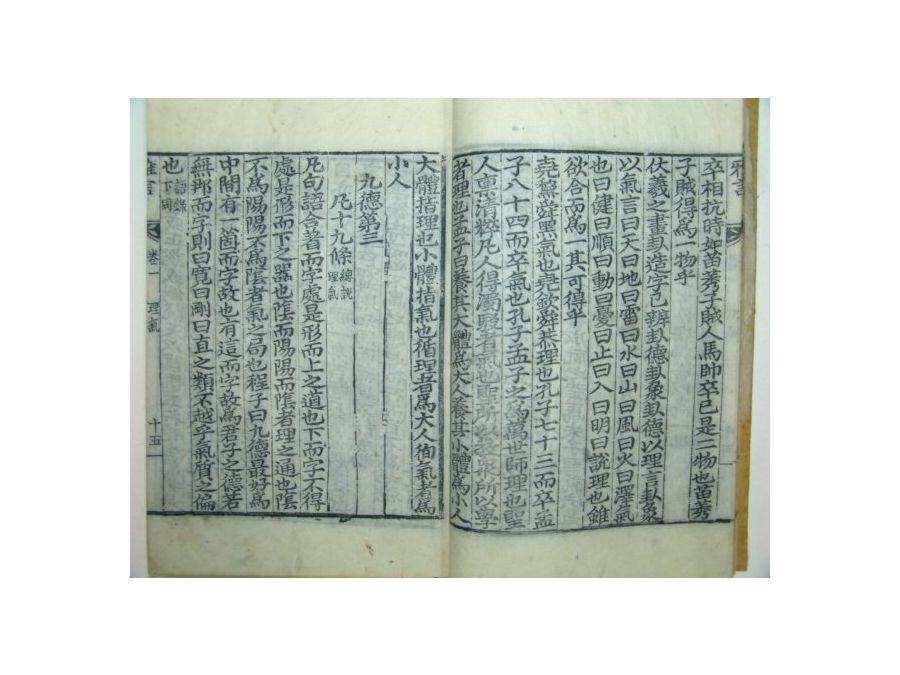 雅言
卒相抗時如苗莠子賊人馬帥卒已是二物也苗莠
子賊得爲一物乎
伏羲之畫卦造字已辨卦德卦象卦德以理言卦象
以氣言曰天曰地曰雷曰水曰山曰風曰火曰澤氣
也曰健曰順曰動曰憂曰止曰入曰明曰說理也雖
欲合而爲一其可得乎
堯黧舜黑氣也堯欽舜恭理也孔子七十三而卒孟
子八十四而卒氣也孔子孟子之爲萬世師理也聖
人稟清粹凡人得濁駁者氣也聖所以敎衆所以學
者理也孟子曰養其大體爲大人養其小體爲小人
大體指理也小體指氣也循理者爲大人徇氣者爲
小人
九德第三
凡十九條 總說理氣
凡句語合著而字處是形而上之道也下而字不得
處是形而下之器也陰而陽陽而陰者理之通也陰
不爲陽陽不爲陰者氣之局也程子曰九德最好爲
中間有一箇而字故也有這而字故爲君子之德若
無那而字則曰寬曰剛曰直之類不越乎氣質之偏
也 語錄下同
雅言 卷一 理氣 十五